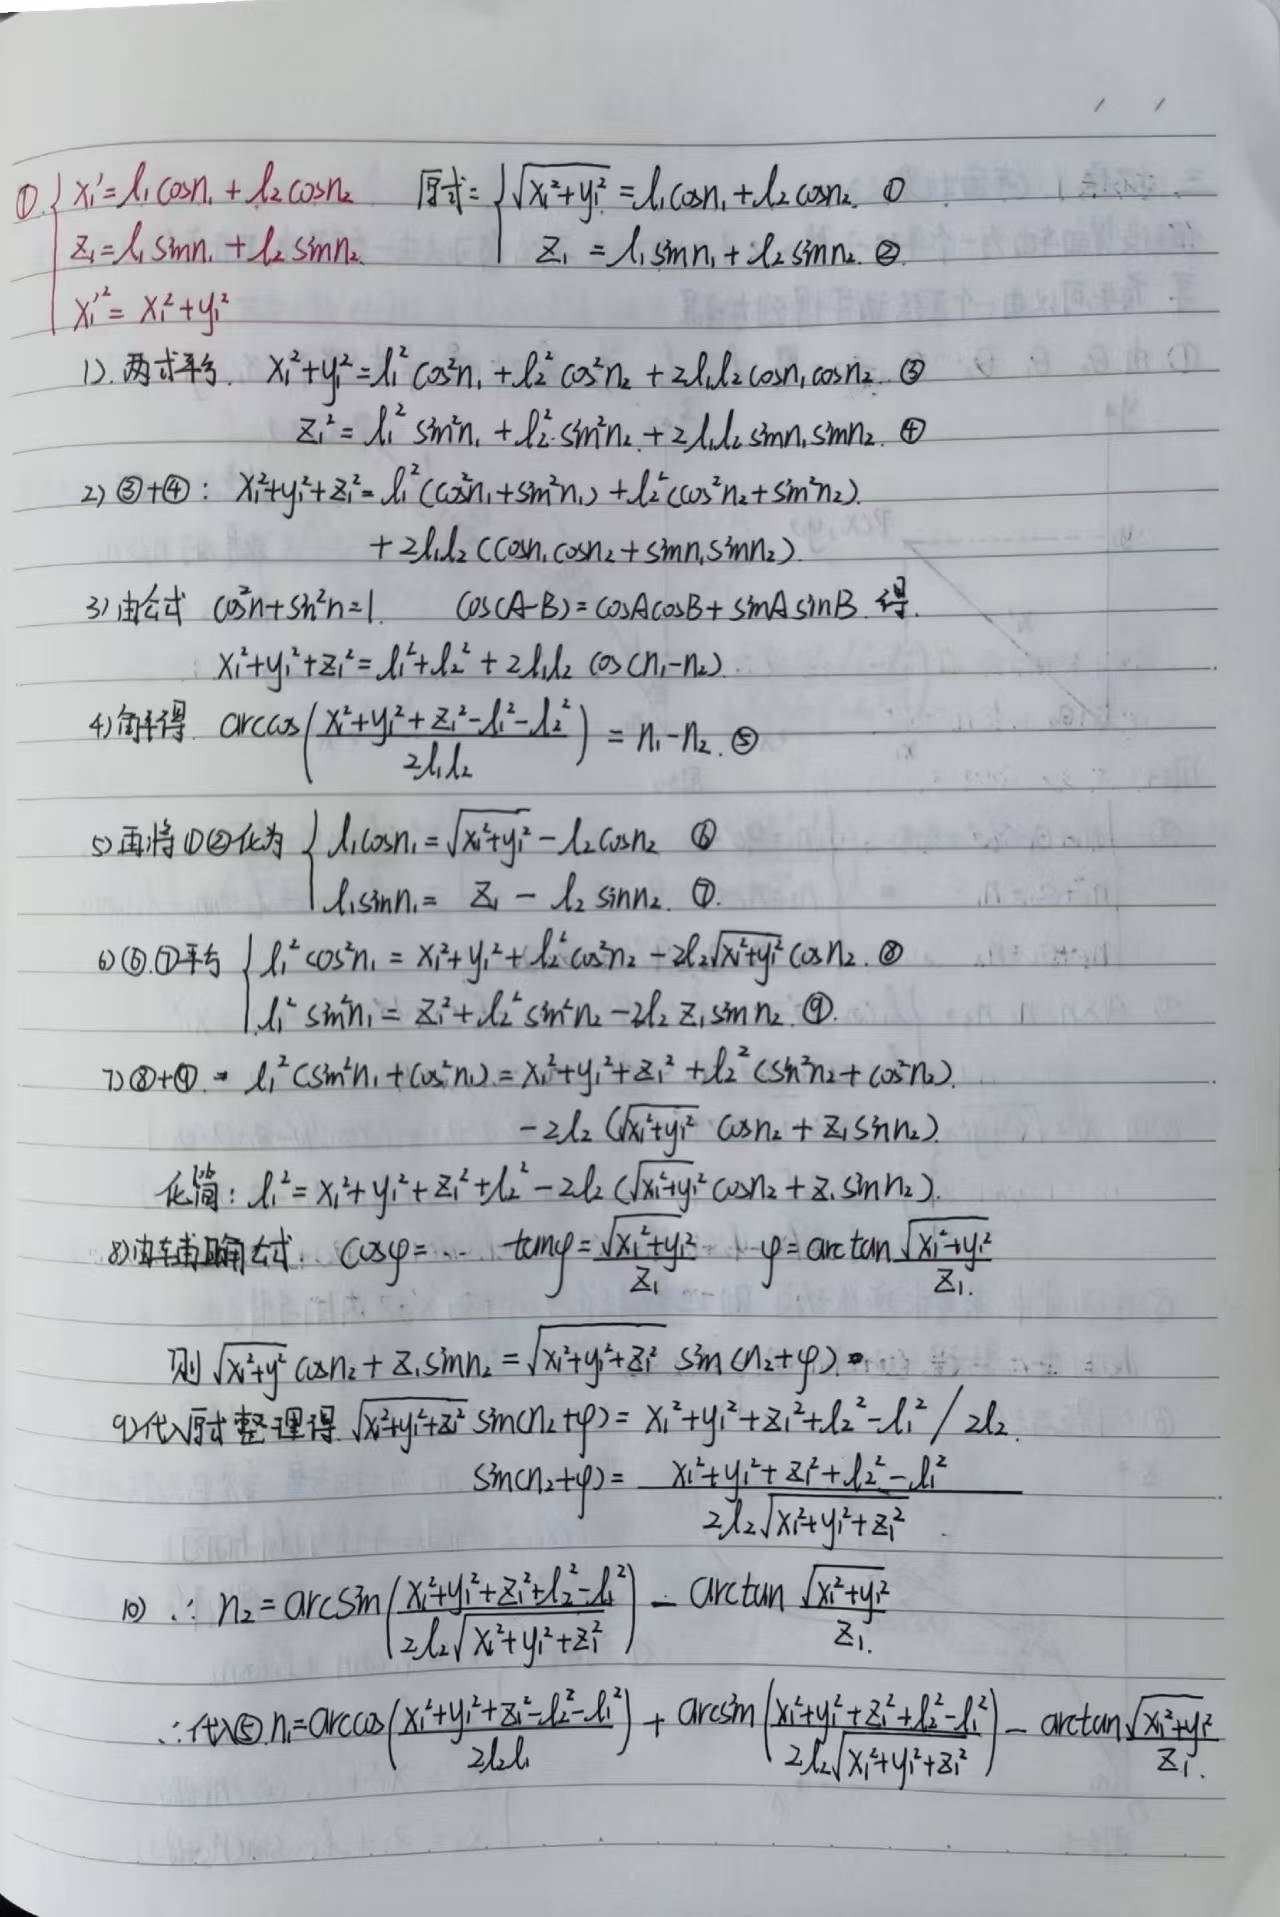 ① { x₁' = l₁cosn₁ + l₂cosn₂ 原式= { √(x₁²+y₁²) = l₁cosn₁ + l₂cosn₂. ①
z₁ = l₁sinn₁ + l₂sinn₂. z₁ = l₁sinn₁ + l₂sinn₂. ②
x₁'² = x₁² + y₁²
1). 两式平方. x₁²+y₁² = l₁²cos²n₁ + l₂²cos²n₂ + 2l₁l₂cosn₁cosn₂. ③
z₁² = l₁²sin²n₁ + l₂²sin²n₂ + 2l₁l₂sinn₁sinn₂. ④
2) ③+④: x₁²+y₁²+z₁² = l₁²(cos²n₁+sin²n₁) + l₂²(cos²n₂+sin²n₂).
+ 2l₁l₂(cosn₁cosn₂+sinn₁sinn₂).
3) 由公式 cos²n+sin²n=1. cos(A-B)=cosAcosB+sinAsinB. 得.
x₁²+y₁²+z₁² = l₁²+l₂² + 2l₁l₂ cos(n₁-n₂).
4) 解得. arccos((x₁²+y₁²+z₁²-l₁²-l₂²)/(2l₁l₂)) = n₁-n₂. ⑤
5) 再将①②化为 { l₁cosn₁ = √(x₁²+y₁²) - l₂cosn₂ ⑥
l₁sinn₁ = z₁ - l₂sinn₂. ⑦.
6) ⑥.⑦平方 { l₁²cos²n₁ = x₁²+y₁²+l₂²cos²n₂ - 2l₂√(x₁²+y₁²)cosn₂. ⑧
l₁²sin²n₁ = z₁²+l₂²sin²n₂ - 2l₂z₁sinn₂. ⑨.
7) ⑧+⑨. = l₁²(sin²n₁+cos²n₁) = x₁²+y₁²+z₁²+l₂²(sin²n₂+cos²n₂).
- 2l₂(√(x₁²+y₁²) cosn₂ + z₁sinn₂).
化简: l₁² = x₁²+y₁²+z₁²+l₂² - 2l₂(√(x₁²+y₁²)cosn₂ + z₁sinn₂).
8) 由辅助角公式. cosφ=… tanφ = √(x₁²+y₁²)/z₁ φ = arctan √(x₁²+y₁²)/z₁.
则 √(x₁²+y²)cosn₂ + z₁sinn₂ = √(x₁²+y₁²+z₁²) sin(n₂+φ).
9) 代入原式整理得. √(x₁²+y₁²+z₁²) sin(n₂+φ) = x₁²+y₁²+z₁²+l₂²-l₁² / 2l₂.
sin(n₂+φ) = (x₁²+y₁²+z₁²+l₂²-l₁²)/(2l₂√(x₁²+y₁²+z₁²)).
10) ∴ n₂ = arcsin((x₁²+y₁²+z₁²+l₂²-l₁²)/(2l₂√(x₁²+y₁²+z₁²))) - arctan √(x₁²+y₁²)/z₁.
∴代入⑤. n₁ = arccos((x₁²+y₁²+z₁²-l₂²-l₁²)/(2l₂l₁)) + arcsin((x₁²+y₁²+z₁²+l₂²-l₁²)/(2l₂√(x₁²+y₁²+z₁²))) - arctan √(x₁²+y₁²)/z₁.